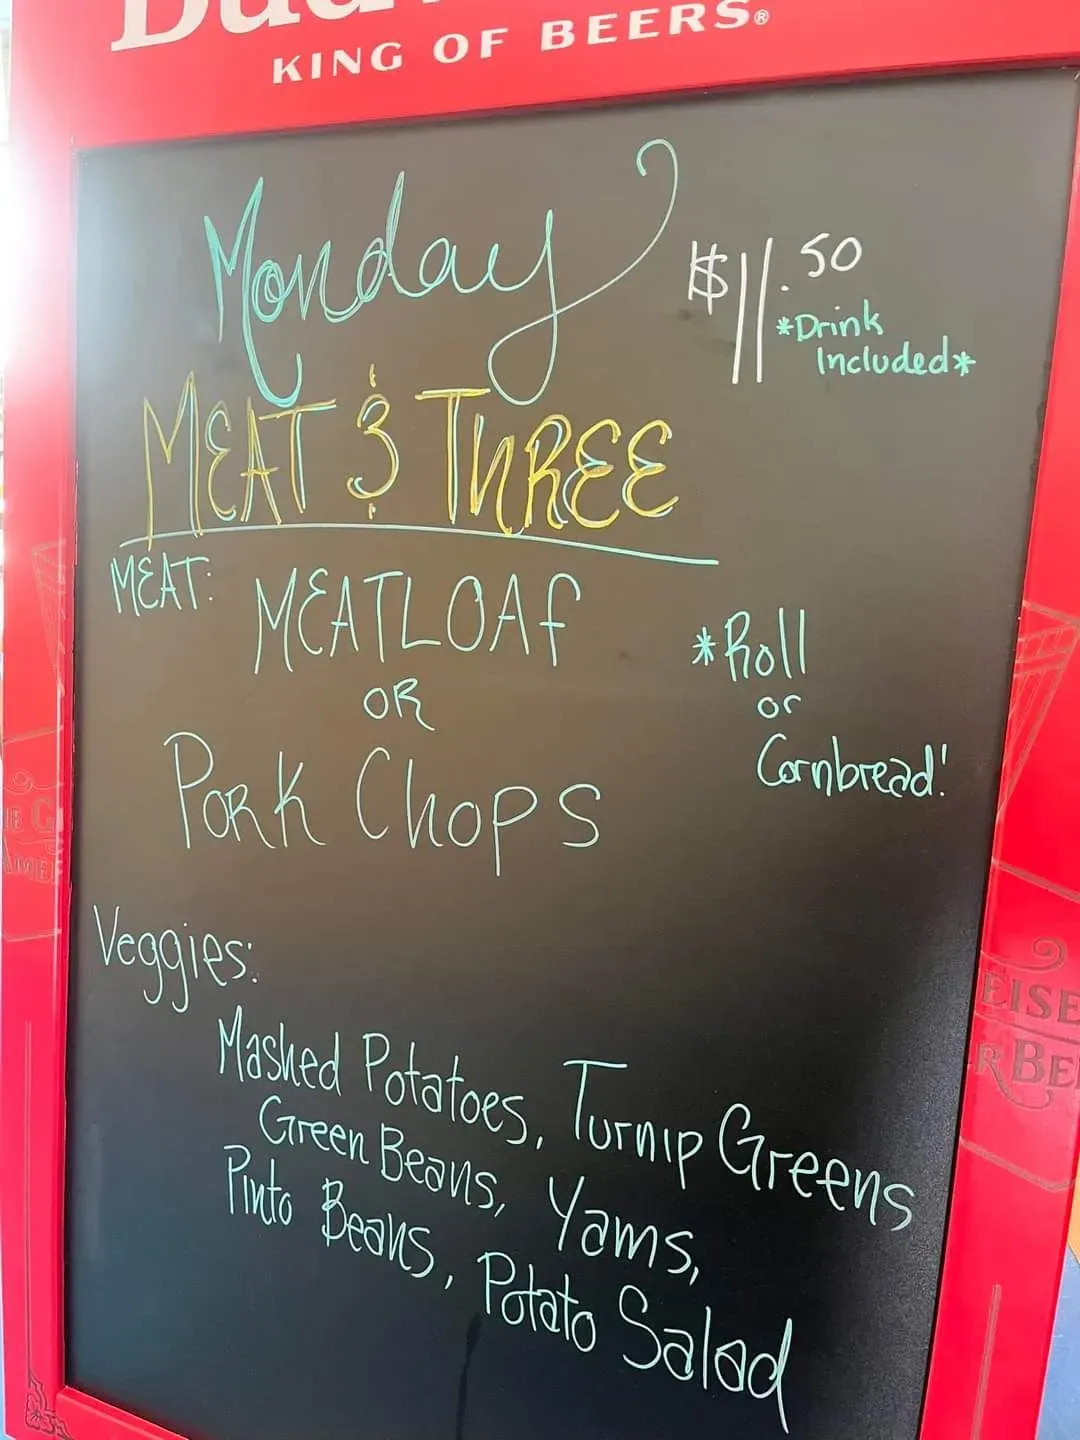 KING OF BEERS®
Monday
$11.50
*Drink
Included*
MEAT & THREE
MEAT: MEATLOAF
OR
PORK CHOPS
*Roll
or
Cornbread!
Veggies:
Mashed Potatoes, Turnip Greens
Green Beans, Yams,
Pinto Beans, Potato Salad